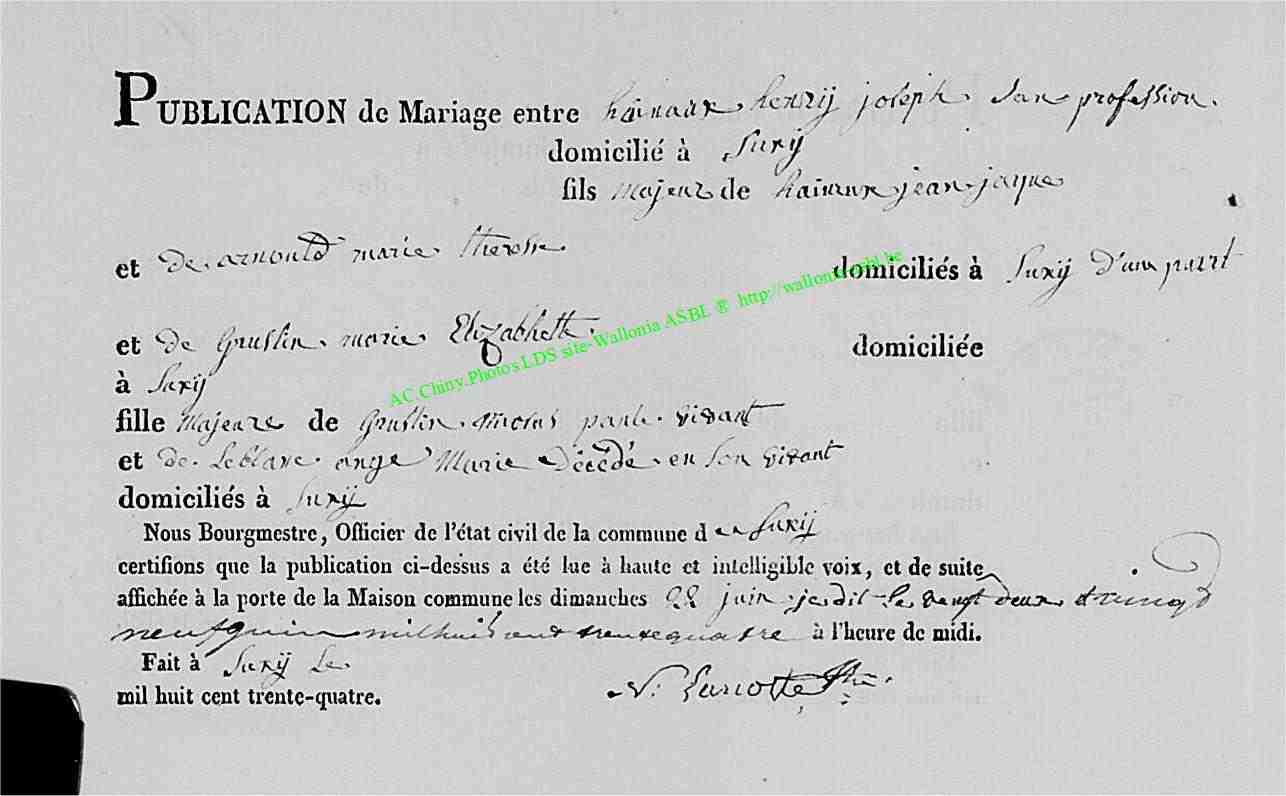 PUBLICATION de Mariage entre hainaux henrij joseph san profession.
domicilié à Surij
fils majeur de hainaux jean jaque
et de arnould marie theresse domiciliés à Suxij d'une part
et de Gruslin marie Elizabhette domiciliée
à Suxij
fille majeure de Gruslin vivant
et de Leblanc ange Marie Décédé en son vivant
domiciliés à Suxij
Nous Bourgmestre, Officier de l'état civil de la commune d e Suxij
certifions que la publication ci-dessus a été lue à haute et intelligible voix, et de suite
affichée à la porte de la Maison commune les dimanches 22 juin je dit le vengt deux et vingt
neuf juin mil huit cent trente quatre à l'heure de midi.
Fait à Suxij Le
mil huit cent trente-quatre.
AC.Chiny.Photo's LDS site-Wallonia ASBL ® http://wallonia-asbl.be